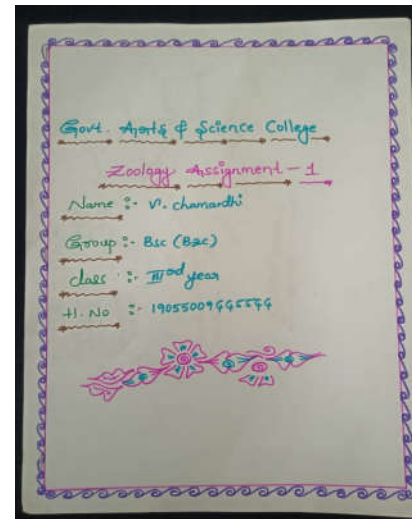 Govt. Arts & Science College
Zoology Assignment - 1
Name :- V. chamanthi
Group :- Bsc (BZC)
class :- III rd year
H. No :- 19055009445544